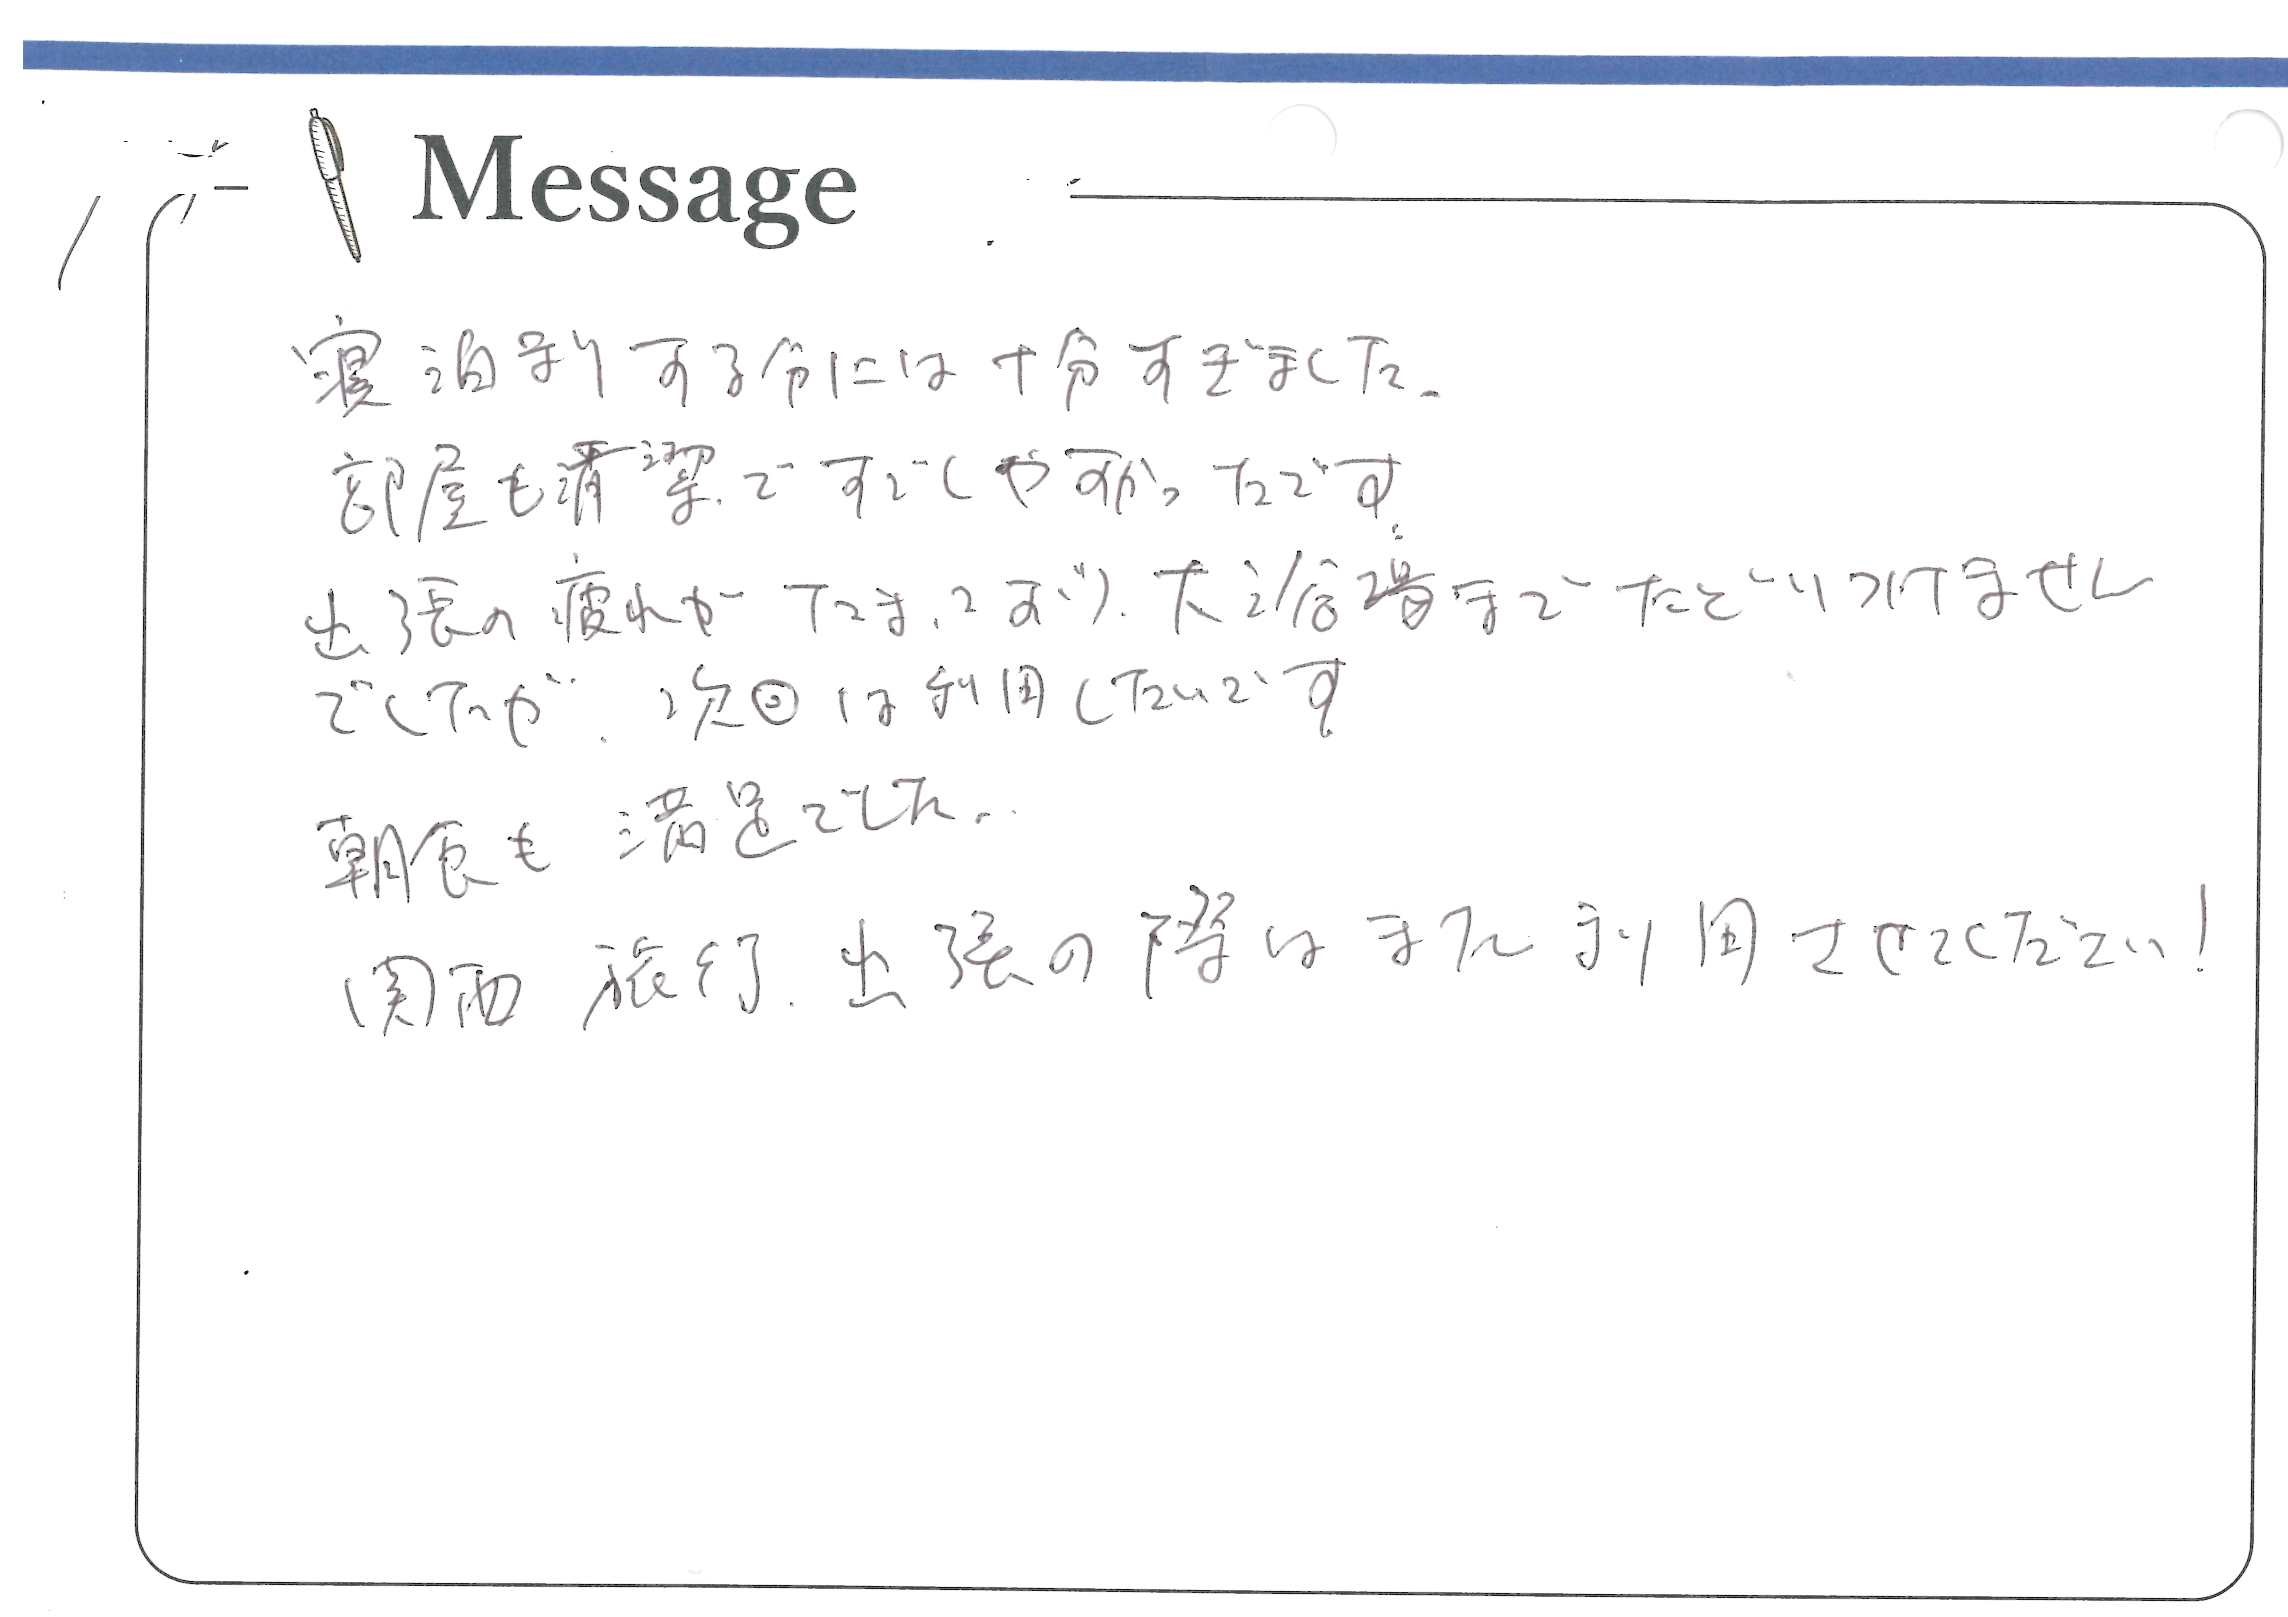 Message
寝泊まりする分には十分すぎました。
部屋も清潔ですごしやすかったです
出張の疲れがたまっており、大浴場までたどりつけません
でしたが、次回は利用したいです
朝食も満足でした。
関西旅行、出張の際はまた利用させてください!